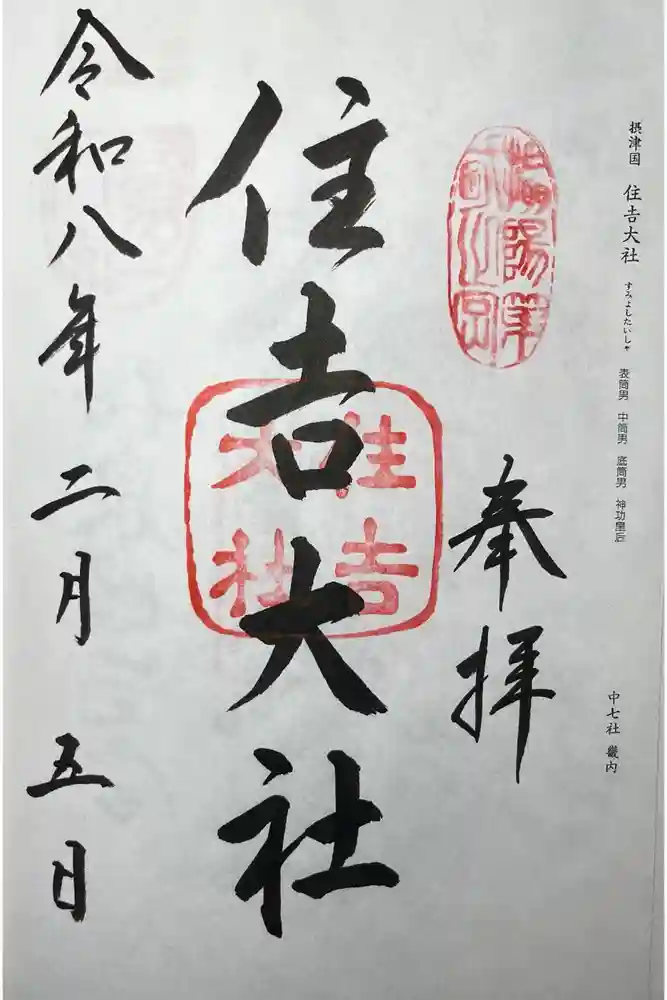 摂津国 住吉大社 すみよしたいしゃ 表筒男 中筒男 底筒男 神功皇后
中七社 畿内
奉拝
住吉大社
住吉
大社
令和八年二月五日